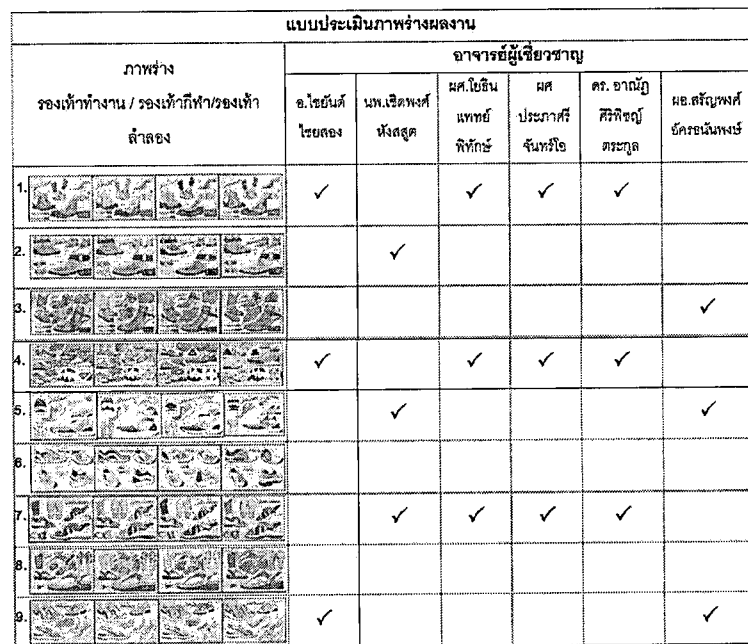 แบบประเมินภาพร่างผลงาน
ภาพร่าง
รองเท้าทำงาน / รองเท้ากีฬา/รองเท้า
ลำลอง
อาจารย์ผู้เชี่ยวชาญ
อ.ไชยันต์
ไชยสอง
นพ.เชิดพงศ์
หังสสูต
ผศ.โยธิน
แพทย์
พิทักษ์
ผศ
ประภาศรี
จันทร์โอ
ดร. อาณัฏ
ศิริพิชญ์
ตระกูล
ผอ.สรัญพงศ์
อัครธนันพงษ์
1. ✓ ✓ ✓ ✓
2. ✓
3. ✓
4. ✓ ✓ ✓ ✓
5. ✓ ✓
6.
7. ✓ ✓ ✓ ✓
8.
9. ✓ ✓